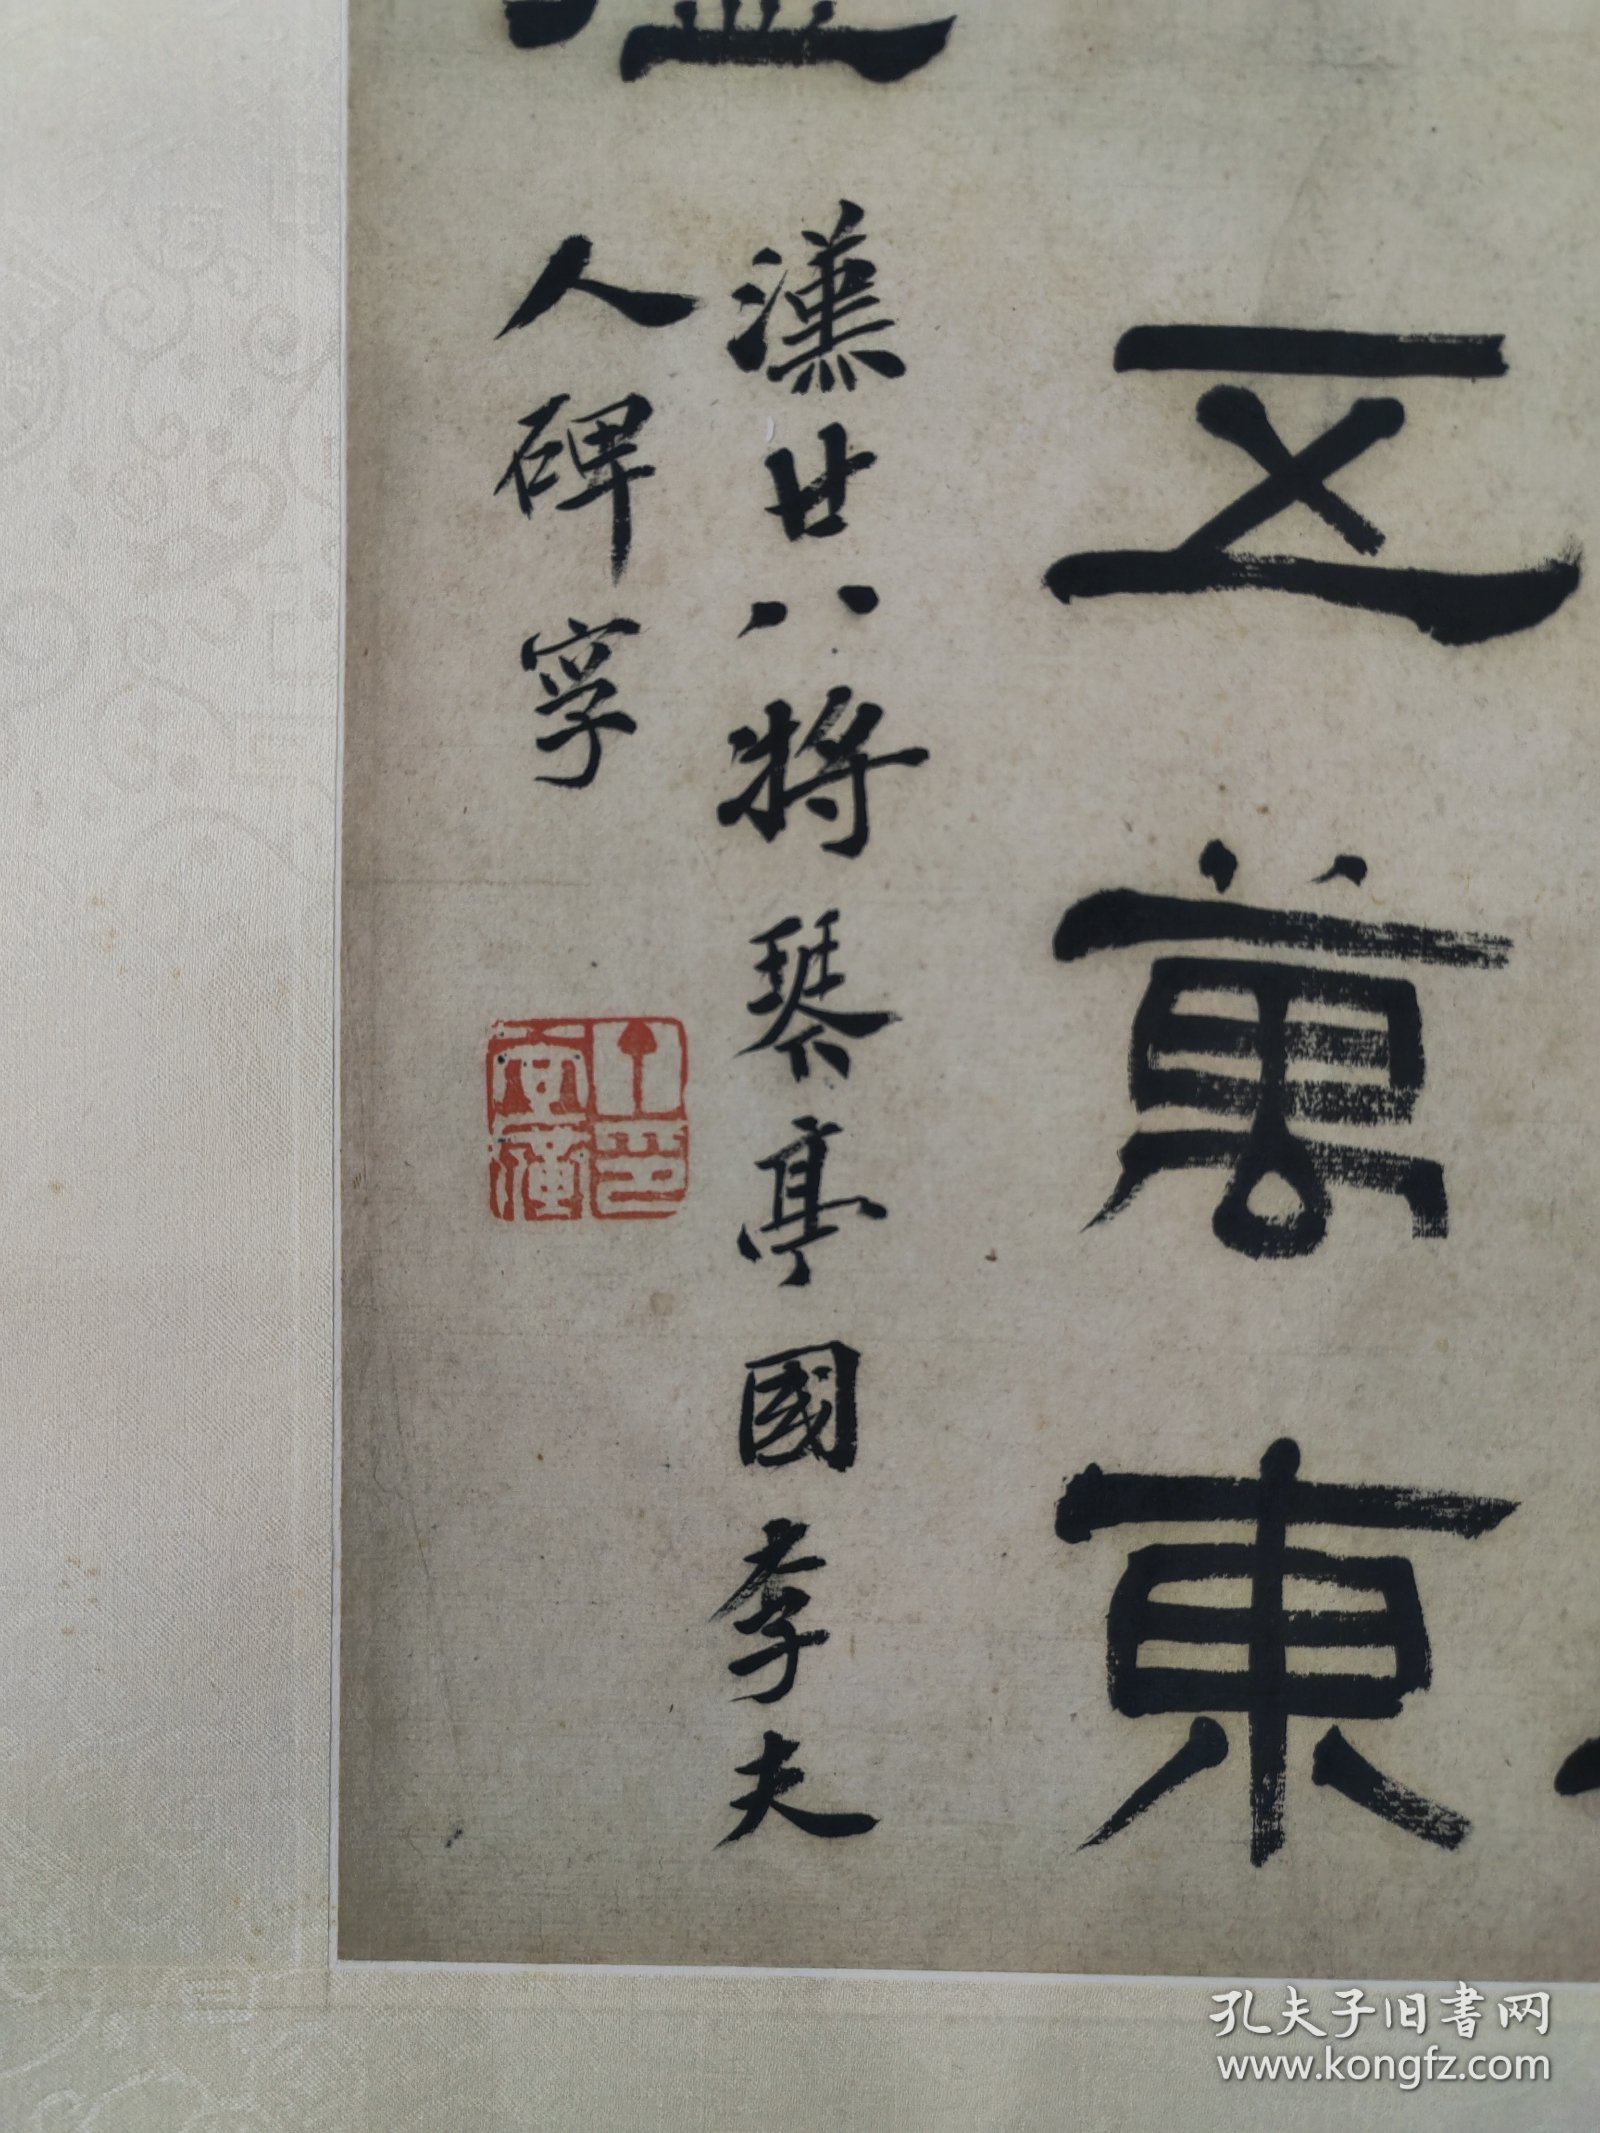 五萬東
漢廿八將琴亭國李夫
人碑字
孔夫子旧書网
www.kongfz.com